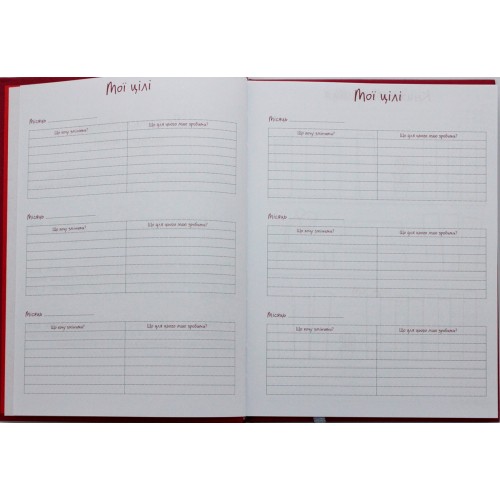 Мої цілі
Місяць
Що хочу змінити? Що для цього маю зробити?
Місяць
Що хочу змінити? Що для цього маю зробити?
Місяць
Що хочу змінити? Що для цього маю зробити?
Мої цілі
Місяць
Що хочу змінити? Що для цього маю зробити?
Місяць
Що хочу змінити? Що для цього маю зробити?
Місяць
Що хочу змінити? Що для цього маю зробити?